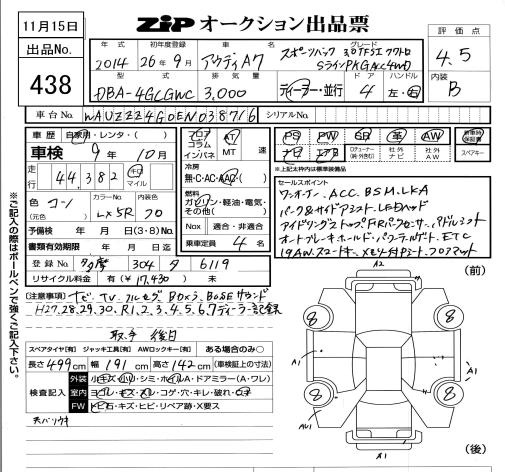 11月15日
ZIP オークション出品票
評価点
4.5
出品No.
438
年式 初年度登録 車名 グレード
2014 26年9月 アウディA7 スポーツバック 3.0TFSI クワトロ
SラインPKG ACC 4WD
型式 排気量 ドア ハンドル
DBA-4GCGWC 3,000 ディーラー・並行 4 左・右
内装
B
車台No. WAUZZZ4G0EN038716 シリアルNo.
車歴 自家用・レンタ・( )
車検 9年10月
走行 44,382 キロ マイル
色 コン カラーNo. LX5R 内装色 70
(元色)
予備検 年 月 日(3・8)No.
書類有効期限 年 月 日迄
登録No. 多摩 304 タ 6119
リサイクル料金 有(¥17,430) 未
フロア コラム インパネ
AT MT 速
冷房
無・C・AC・AAC
燃料
ガソリン・軽油・電気・その他( )
Nox 適合・非適合
乗車定員 4 名
PS PW SR 革 AW 新車時保証書
ナビ エアB ロクチューナー(純・外含む) 社外ナビ 社外AW スペアキー
※上記太枠内は減点対象外
セールスポイント
ワンオーナー、ACC、BSM、LKA
パーク&サイドアシスト、LEDヘッド
アイドリングストップ、F/Rパークセンサー、パドルシフト
オートブレーキホールド、パワーテールゲート、ETC
19AW、スマートキー、メモリ付Pシート、フロアマット
[注意事項] ナビ、TV、フルセグ、BOXナラ、BOSEサウンド
H27.28.29.30.R1.2.3.4.5.6.7ディーラー記録
取手 後日
スペアタイヤ[有] ジャッキ工具[有] AWロックキー[有] ある場合のみ○
長さ499cm 幅191cm 高さ142cm (車検証上の寸法)
検査記入
外装 小キズ・小凹・シミ・ホイルA・ドアミラー(A・ワレ)
室内 ヨゴレ・キズ・スレ・コゲ・穴・キレ・破れ
FW トビ石・キズ・ヒビ・リペア跡・X要ス
天バリウキ
(前)
A2
8 8
A1 A1
8 8
AU1 A1
A1
(後)
※ご記入の際はボールペンで強くご記入下さい。